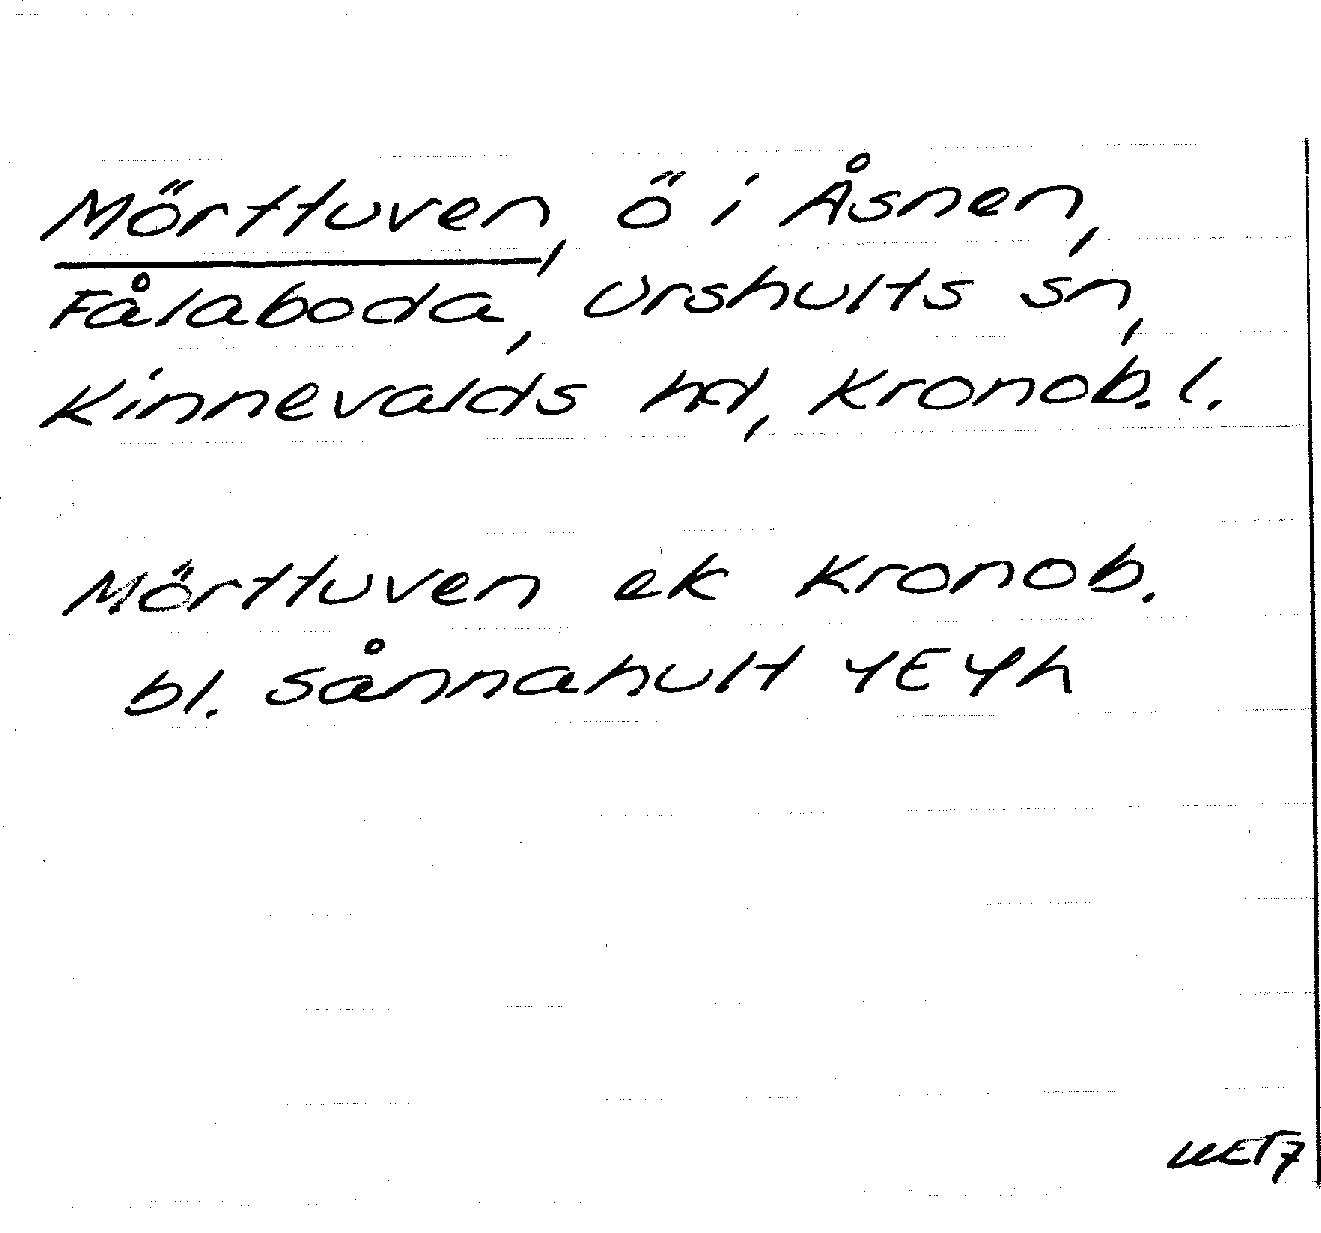 Mörttuven, ö i Åsnen,
Fålaboda, Urshults sn,
Kinnevalds hd, Kronob. l.
Mörttuven ek Kronob.
bl. Sånnahult 4E4h